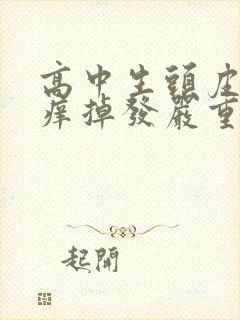 高中生頭皮
痒掉發嚴重
起開